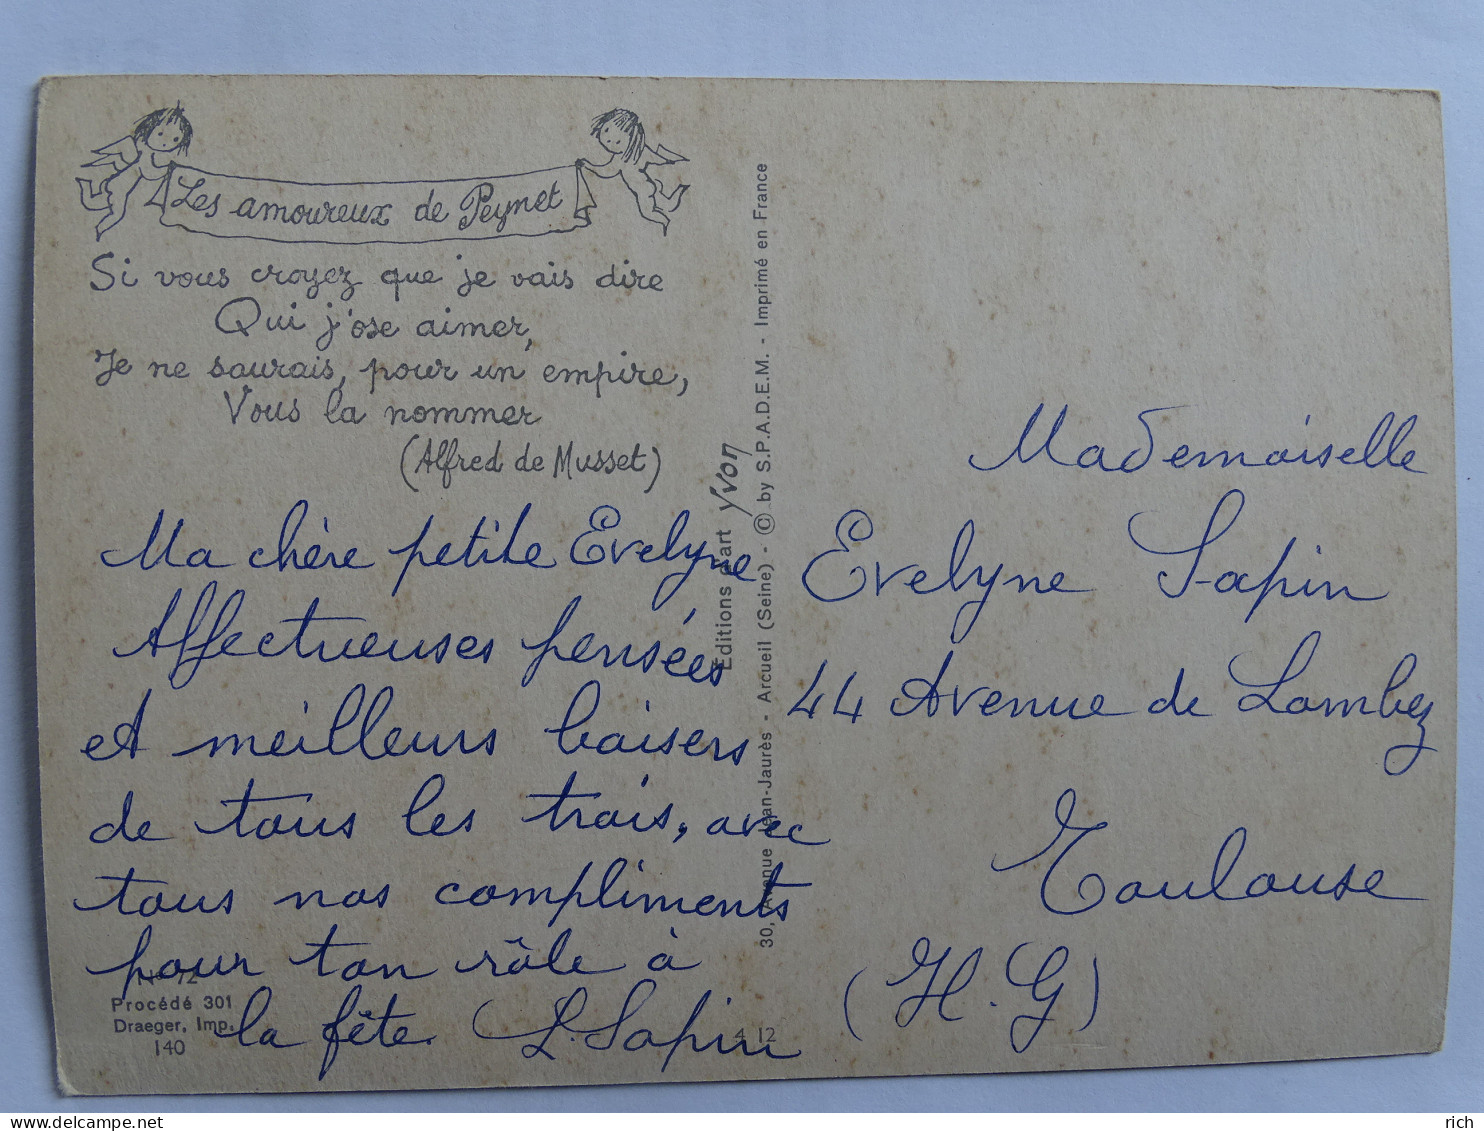 Les amoureux de Peynet
Si vous croyez que je vais dire
Qui j'ose aimer,
Je ne saurais, pour un empire,
Vous la nommer
(Alfred de Musset)
Ma chère petite Evelyne
Affectueuses pensées
et meilleurs baisers
de tous les trois, avec
tous nos compliments
pour ton rôle à
la fête. L. Sapin
N° 72
Procédé 301
Draeger, Imp.
140
4 12
30, Avenue Jean-Jaurès - Arcueil (Seine) - © by S.P.A.D.E.M. - Imprimé en France
Editions d'art Yvon
Mademoiselle
Evelyne Sapin
44 Avenue de Lombez
Toulouse
(H.G)
delcampe.net
rich